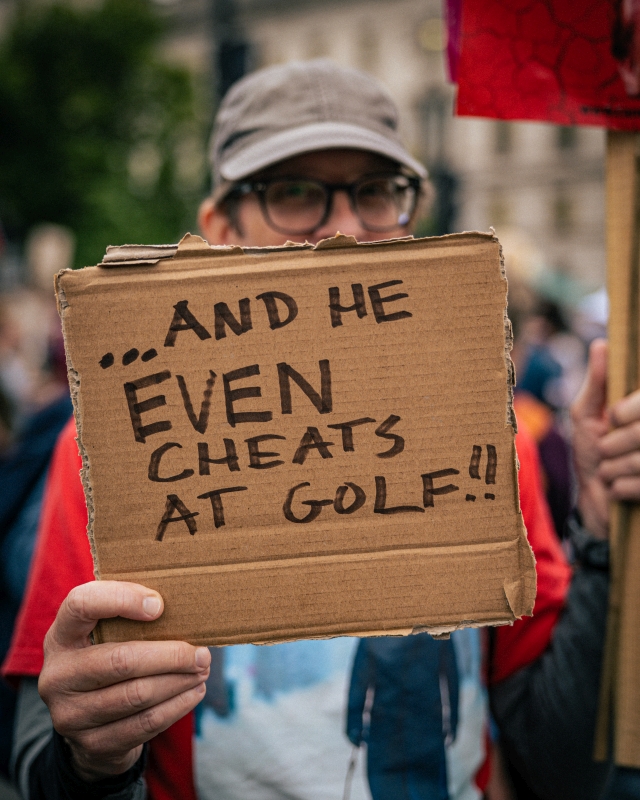 ...AND HE
EVEN
CHEATS
AT GOLF!!